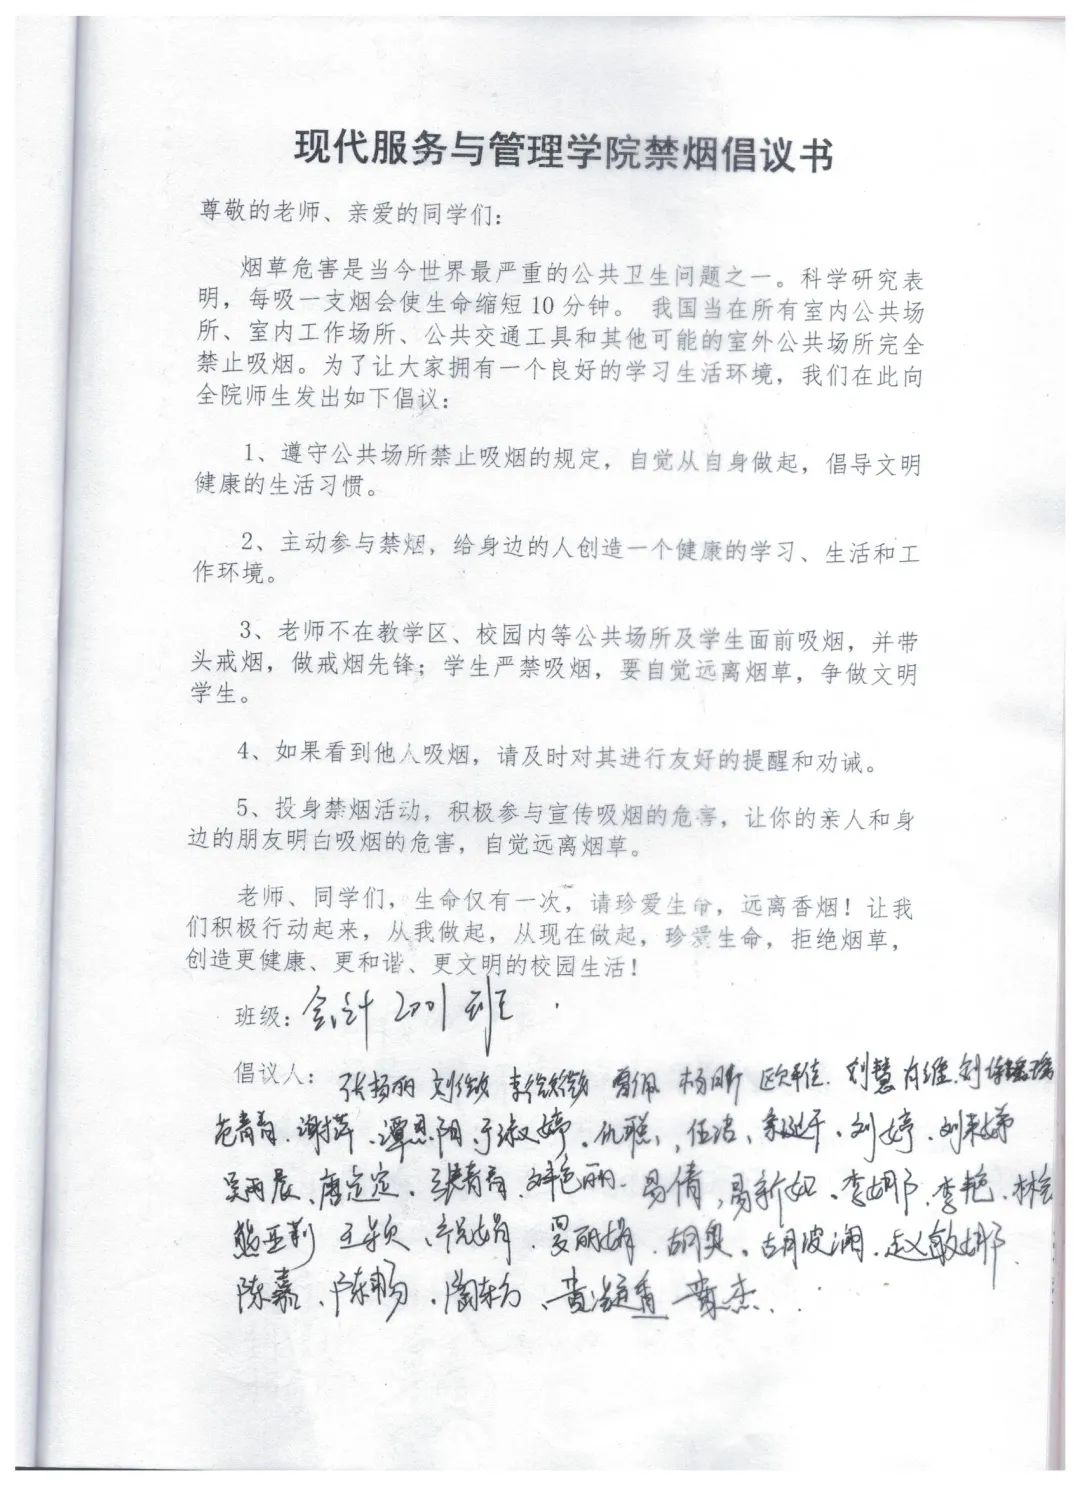 现代服务与管理学院禁烟倡议书
尊敬的老师、亲爱的同学们：
烟草危害是当今世界最严重的公共卫生问题之一。科学研究表
明，每吸一支烟会使生命缩短10分钟。 我国当在所有室内公共场
所、室内工作场所、公共交通工具和其他可能的室外公共场所完全
禁止吸烟。为了让大家拥有一个良好的学习生活环境，我们在此向
全院师生发出如下倡议：
1、遵守公共场所禁止吸烟的规定，自觉从自身做起，倡导文明
健康的生活习惯。
2、主动参与禁烟，给身边的人创造一个健康的学习、生活和工
作环境。
3、老师不在教学区、校园内等公共场所及学生面前吸烟，并带
头戒烟，做戒烟先锋；学生严禁吸烟，要自觉远离烟草，争做文明
学生。
4、如果看到他人吸烟，请及时对其进行友好的提醒和劝诫。
5、投身禁烟活动，积极参与宣传吸烟的危害，让你的亲人和身
边的朋友明白吸烟的危害，自觉远离烟草。
老师、同学们，生命仅有一次，请珍爱生命，远离香烟！让我
们积极行动起来，从我做起，从现在做起，珍爱生命，拒绝烟草，
创造更健康、更和谐、更文明的校园生活！
班级：会计2001班
倡议人： 张扬丽 刘慧
范青青、谢萍、谭思阳、于淑婷、仇聪、伍洁、刘婷、
吴雨晨、唐定定、易倩，易新如、李娜、李艳、
熊亚莉 王颖、胡奥、胡波澜、赵敏娜
陈嘉、陈畅、